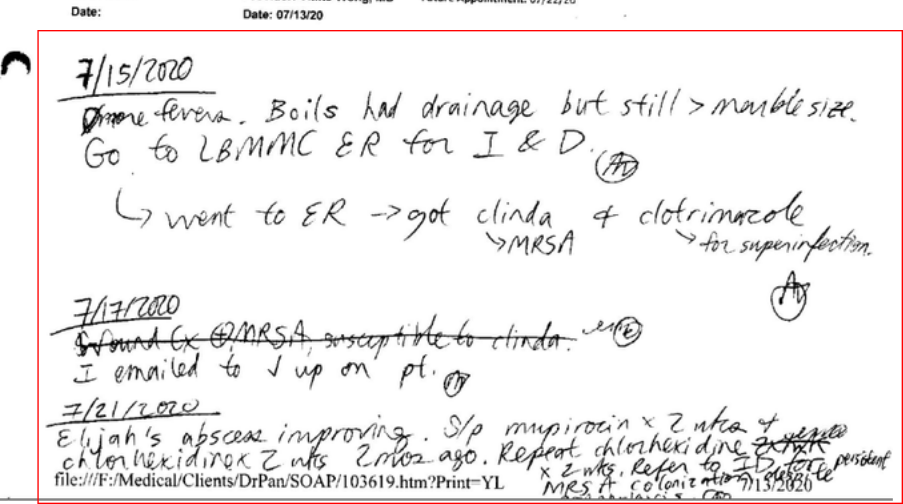 Date:
Date: 07/13/20
7/15/2020
more fevers. Boils had drainage but still > marble size.
Go to LBMMC ER for I & D.
↳ went to ER → got clinda & clotrimazole
↘ MRSA ↘ for superinfection.
7/17/2020
Wound Cx ⊕ MRSA, susceptible to clinda.
I emailed to √ up on pt.
7/21/2020
Elijah's abscess improving. S/p mupirocin x 2 wks &
chlorhexidine x 2 wks 2mos ago. Repeat chlorhexidine
x 2 wks. Refer to ID for persistent
MRSA colonization despite
file:///F:/Medical/Clients/DrPan/SOAP/103619.htm?Print=YL 7/13/2020